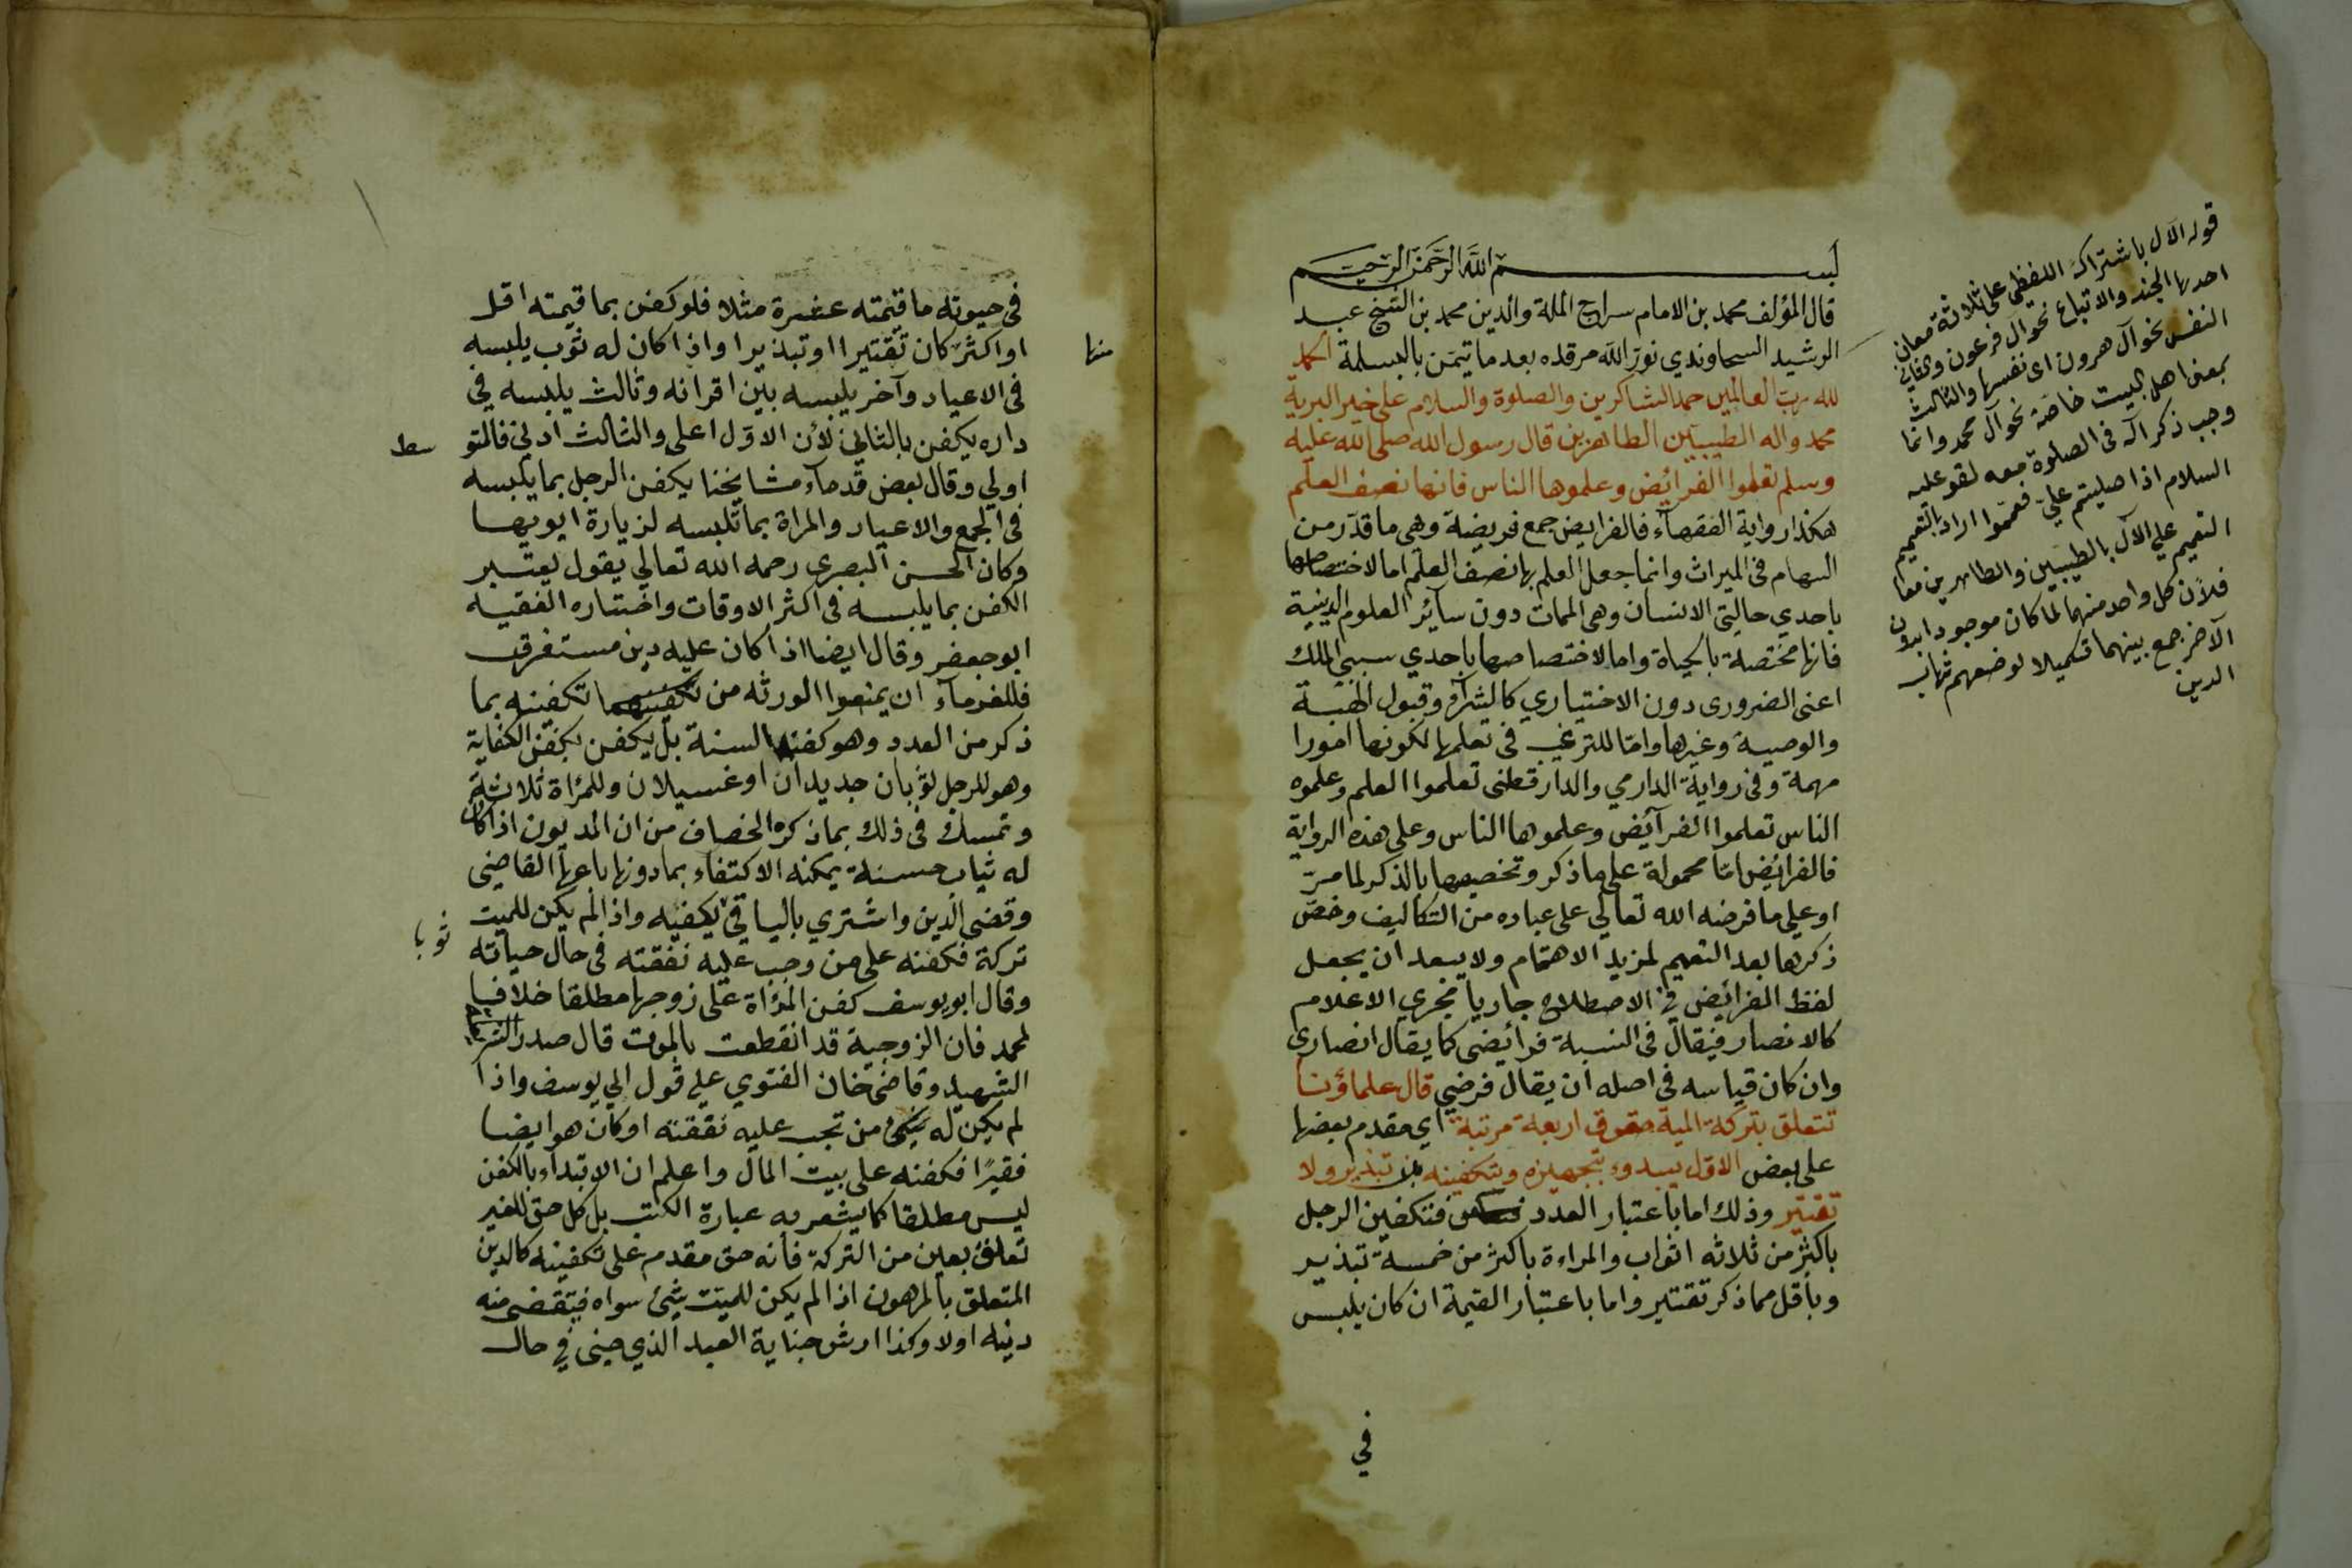 بسم الله الرحمن الرحيم
قال المؤلف محمد بن الامام سراج الملة والدين محمد بن الشيخ عبد
الرشيد السجاوندي نور الله مرقده بعد ما تيمن بالبسملة الحمد
لله رب العالمين حمد الشاكرين والصلوة والسلام على خير البرية
محمد واله الطيبين الطاهرين قال رسول الله صلى الله عليه
وسلم تعلموا الفرائض وعلموها الناس فانها نصف العلم
هكذا رواية الفقهاء فالفرايض جمع فريضة وهي ما قدر من
السهام في الميراث وانما جعل العلم بها نصف العلم اما لاختصاصها
باحدي حالتي الانسان وهي الممات دون سائر العلوم الدينية
فانها مختصة بالحياة واما لاختصاصها باحدي سببي الملك
اعني الضروري دون الاختياري كالشراء وقبول الهبة
والوصية وغيرها واما للترغيب في تعلمها لكونها امورا
مهمة وفي رواية الدارمي والدارقطني تعلموا العلم وعلموه
الناس تعلموا الفرآئض وعلموها الناس وعلى هذه الرواية
فالفرائض اما محمولة على ما ذكر وتخصيصها بالذكر لما مر
او علي ما فرضه الله تعالي على عباده من التكاليف وخص
ذكرها بعد التعميم لمزيد الاهتمام ولا يبعد ان يجعل
لفظ الفرائض في الاصطلاح جاريا مجري الاعلام
كالانصار فيقال في النسبة فرائضي كما يقال انصاري
وان كان قياسه في اصله ان يقال فرضي قال علماؤنا
تتعلق بتركة الميت حقوق اربعة مرتبة اي مقدم بعضها
على بعض الاول يبدء بتجهيزه وتكفينه من تبذير ولا
تقتير وذلك اما باعتبار العدد فتكفين الرجل
باكثر من ثلاثه اثواب والمراءة باكثر من خمسة تبذير
وباقل مما ذكر تقتير واما باعتبار القيمة ان كان يلبس
في
قوله الآل باشتراك اللفظي على ثلاثة معان
احدها الجند والاتباع نحو آل فرعون والثاني
النفس نحو آل هرون اى نفسها والثالث
بمعنى اهل البيت خاصة نحو آل محمد وانما
وجب ذكر آله في الصلوة معه لقوله عليه
السلام اذا صليتم علي فعمموا اراد بالتعميم
التعميم علي الآل بالطيبين والطاهرين معا
فلان كل واحد منهما لما كان موجودا بدون
الآخر جمع بينهما تكميلا لوضعهم شهاب
الدين
في حيوته ما قيمته عشرة مثلا فلو كفن بما قيمته اقل
منها
او اكثر كان تقتيرا او تبذيرا واذا كان له ثوب يلبسه
في الاعياد وآخر يلبسه بين اقرانه وثالث يلبسه في
داره يكفن بالثاني لأن الاول اعلى والثالث ادني فالمتو
سط
اولي وقال بعض قدمآء مشايخنا يكفن الرجل بما يلبسه
في الجمع والاعياد والمراة بما تلبسه لزيارة ابويها
وكان الحسن البصري رحمه الله تعالي يقول يعتبر
الكفن بما يلبسه في اكثر الاوقات واختاره الفقيه
ابو جعفر وقال ايضا اذا كان عليه دين مستغرق
فللغرمآء ان يمنعوا الورثه من تكفينه بما
ذكر من العدد وهو كفن السنة بل يكفن بكفن الكفاية
وهو للرجل ثوبان جديدان او غسيلان وللمراة ثلاثة
وتمسك في ذلك بما ذكره الخصاف من ان المديون اذا كان
له ثياب حسنة يمكنه الاكتفاء بما دونها باعها القاضي
وقضى الدين واشتري بالباقي يكفيه واذا لم يكن للميت
ثوبا
تركة فكفنه على من وجب عليه نفقته في حال حياته
وقال ابو يوسف كفن المرأة على زوجها مطلقا خلافا
لمحمد فان الزوجية قد انقطعت بالموت قال صدر
الشهيد وقاضي خان الفتوي علي قول ابي يوسف واذا
لم يكن له من تجب عليه نفقته او كان هو ايضا
فقيرًا فكفنه على بيت المال واعلم ان الابتداء بالكفن
ليس مطلقا كما يشعر به عبارة الكتب بل كل حق للغير
تعلق بعين من التركة فانه حق مقدم على تكفينه كالدين
المتعلق بالمرهون اذا لم يكن للميت شئ سواه فيقضى منه
دينه اولا وكذا ارش جناية العبد الذي جنى في حال